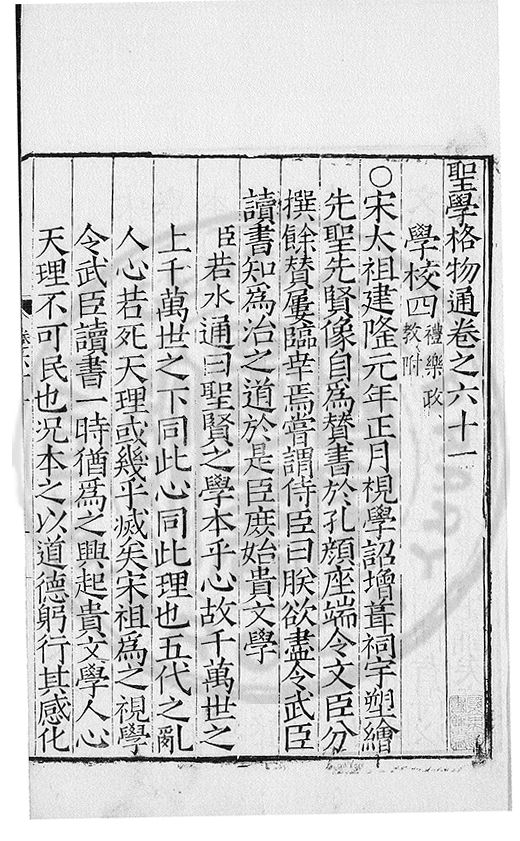 聖學格物通卷之六十一
學校四禮樂政教附
○宋太祖建隆元年正月視學詔增葺祠宇塑繪
先聖先賢像自爲贊書於孔顔座端令文臣分
撰餘贊屢臨幸焉嘗謂侍臣曰朕欲盡令武臣
讀書知爲治之道於是臣庶始貴文學
臣若水通曰聖賢之學本乎心故千萬世之
上千萬世之下同此心同此理也五代之亂
人心若死天理或幾乎滅矣宋祖爲之視學
令武臣讀書一時猶爲之興起貴文學人心
天理不可民也况本之以道德躬行其感化